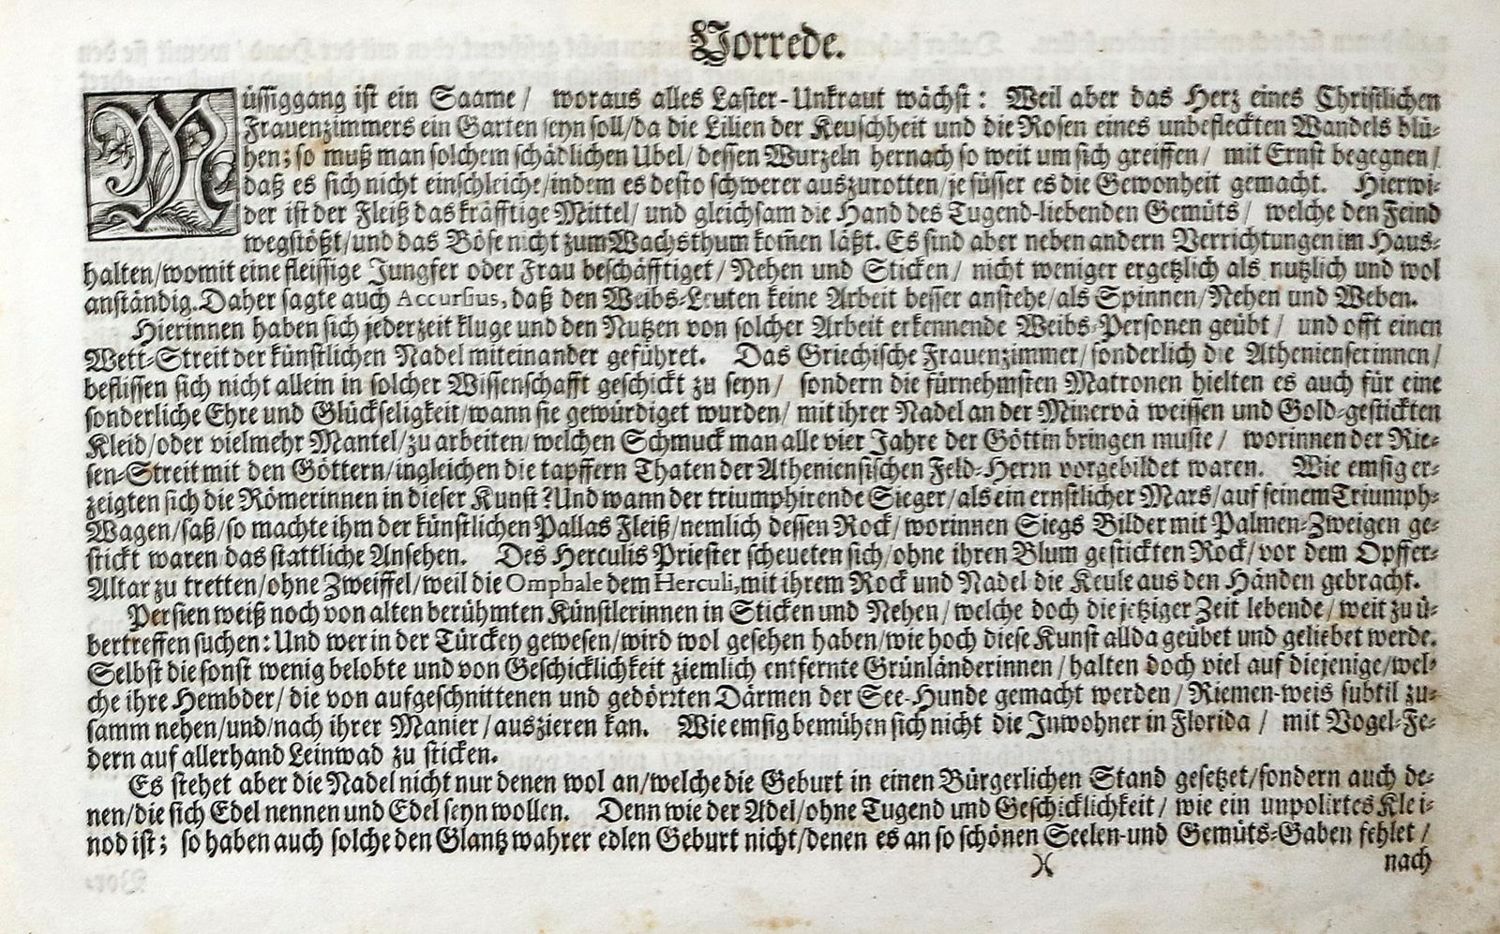 Vorrede.
Müssiggang ist ein Saame / woraus alles Laster-Unkraut wächst: Weil aber das Hertz eines Christlichen
Frauenzimmers ein Garten seyn soll/da die Lilien der Keuschheit und die Rosen eines unbefleckten Wandels blü-
hen; so muß man solchem schädlichen Ubel/ dessen Wurzeln hernach so weit um sich greiffen/ mit Ernst begegnen/
daß es sich nicht einschleiche/indem es desto schwerer auszurotten/je süsser es die Gewonheit gemacht. Hierwi-
der ist der Fleiß das kräfftige Mittel/ und gleichsam die Hand des Tugend-liebenden Gemüts/ welche den Feind
wegstößt/und das Böse nicht zum Wachsthum kom̃en läßt. Es sind aber neben andern Verrichtungen im Haus-
halten/womit eine fleissige Jungfer oder Frau beschäfftiget/Nehen und Sticken/ nicht weniger ergetzlich als nutzlich und wol
anständig. Daher sagte auch Accursius, daß den Weibs-Leuten keine Arbeit besser anstehe/als Spinnen/Nehen und Weben.
Hierinnen haben sich jederzeit kluge und den Nutzen von solcher Arbeit erkennende Weibs-Personen geübt/ und offt einen
Wett-Streit der künstlichen Nadel miteinander geführet. Das Griechische Frauenzimmer/sonderlich die Athenienserinnen/
beflissen sich nicht allein in solcher Wissenschafft geschickt zu seyn/ sondern die fürnehmsten Matronen hielten es auch für eine
sonderliche Ehre und Glückseligkeit/wann sie gewürdiget wurden/ mit ihrer Nadel an der Minervä weissen und Gold-gestickten
Kleid/oder vielmehr Mantel/zu arbeiten/welchen Schmuck man alle vier Jahre der Göttin bringen muste/ worinnen der Rie-
sen-Streit mit den Göttern/ingleichen die tapffern Thaten der Atheniensischen Feld-Herrn vorgebildet waren. Wie emsig er-
zeigten sich die Römerinnen in dieser Kunst? Und wann der triumphirende Sieger/als ein ernstlicher Mars/auf seinem Triumph-
Wagen/saß/so machte ihm der künstlichen Pallas Fleiß/nemlich dessen Rock/worinnen Siegs Bilder mit Palmen-Zweigen ge-
stickt waren/das stattliche Ansehen. Des Herculis Priester scheueten sich/ohne ihren Blum gestickten Rock/vor dem Opffer-
Altar zu tretten/ohne Zweiffel/weil die Omphale dem Herculi, mit ihrem Rock und Nadel die Keule aus den Händen gebracht.
Persien weiß noch von alten berühmten Künstlerinnen in Sticken und Nehen/welche doch die jetziger Zeit lebende/weit zu ü-
bertreffen suchen: Und wer in der Türckey gewesen/wird wol gesehen haben/wie hoch diese Kunst allda geübet und geliebet werde.
Selbst die sonst wenig belobte und von Geschicklichkeit ziemlich entfernte Grünländerinnen/halten doch viel auf diejenige/wel-
che ihre Hembder/die von aufgeschnittenen und gedörzten Därmen der See-Hunde gemacht werden/Riemen-weis subtil zu-
samm nehen/und/nach ihrer Manier/auszieren kan. Wie emsig bemühen sich nicht die Inwohner in Florida / mit Vogel-Fe-
dern auf allerhand Leinwad zu sticken.
Es stehet aber die Nadel nicht nur denen wol an/welche die Geburt in einen Bürgerlichen Stand gesetzet/sondern auch de-
nen/die sich Edel nennen und Edel seyn wollen. Denn wie der Adel/ohne Tugend und Geschicklichkeit/ wie ein unpolirtes Klei-
nod ist; so haben auch solche den Glantz wahrer edlen Geburt nicht/denen es an so schönen Seelen-und Gemüts-Gaben fehlet/
)( nach